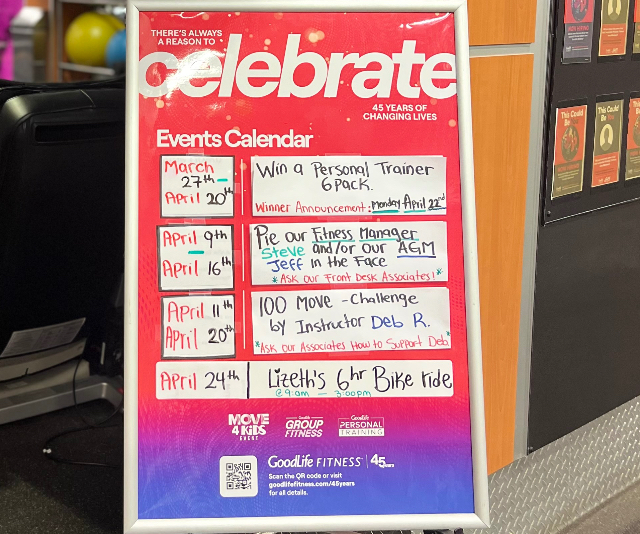 THERE'S ALWAYS
A REASON TO
celebrate
45 YEARS OF
CHANGING LIVES
Events Calendar
March
27th –
April 20th
Win a Personal Trainer
6 Pack.
Winner Announcement: Monday April 22nd
April 9th
–
April 16th
Pie our Fitness Manager
Steve and/or our AGM
Jeff in the Face
*Ask our Front Desk Associates!*
April 11th
April 20th
100 Move - Challenge
by Instructor Deb R.
*Ask our Associates How to Support Deb*
April 24th
Lizeth's 6hr Bike ride
@ 9:am — 3:00pm
MOVE
4 KIDS
EVENT
GoodLife
GROUP
FITNESS
GoodLife
PERSONAL
TRAINING
GOODLIFE FITNESS | 45 years
Scan the QR code or visit
goodlifefitness.com/45years
for all details.
This Could
Be
This Could
Be You